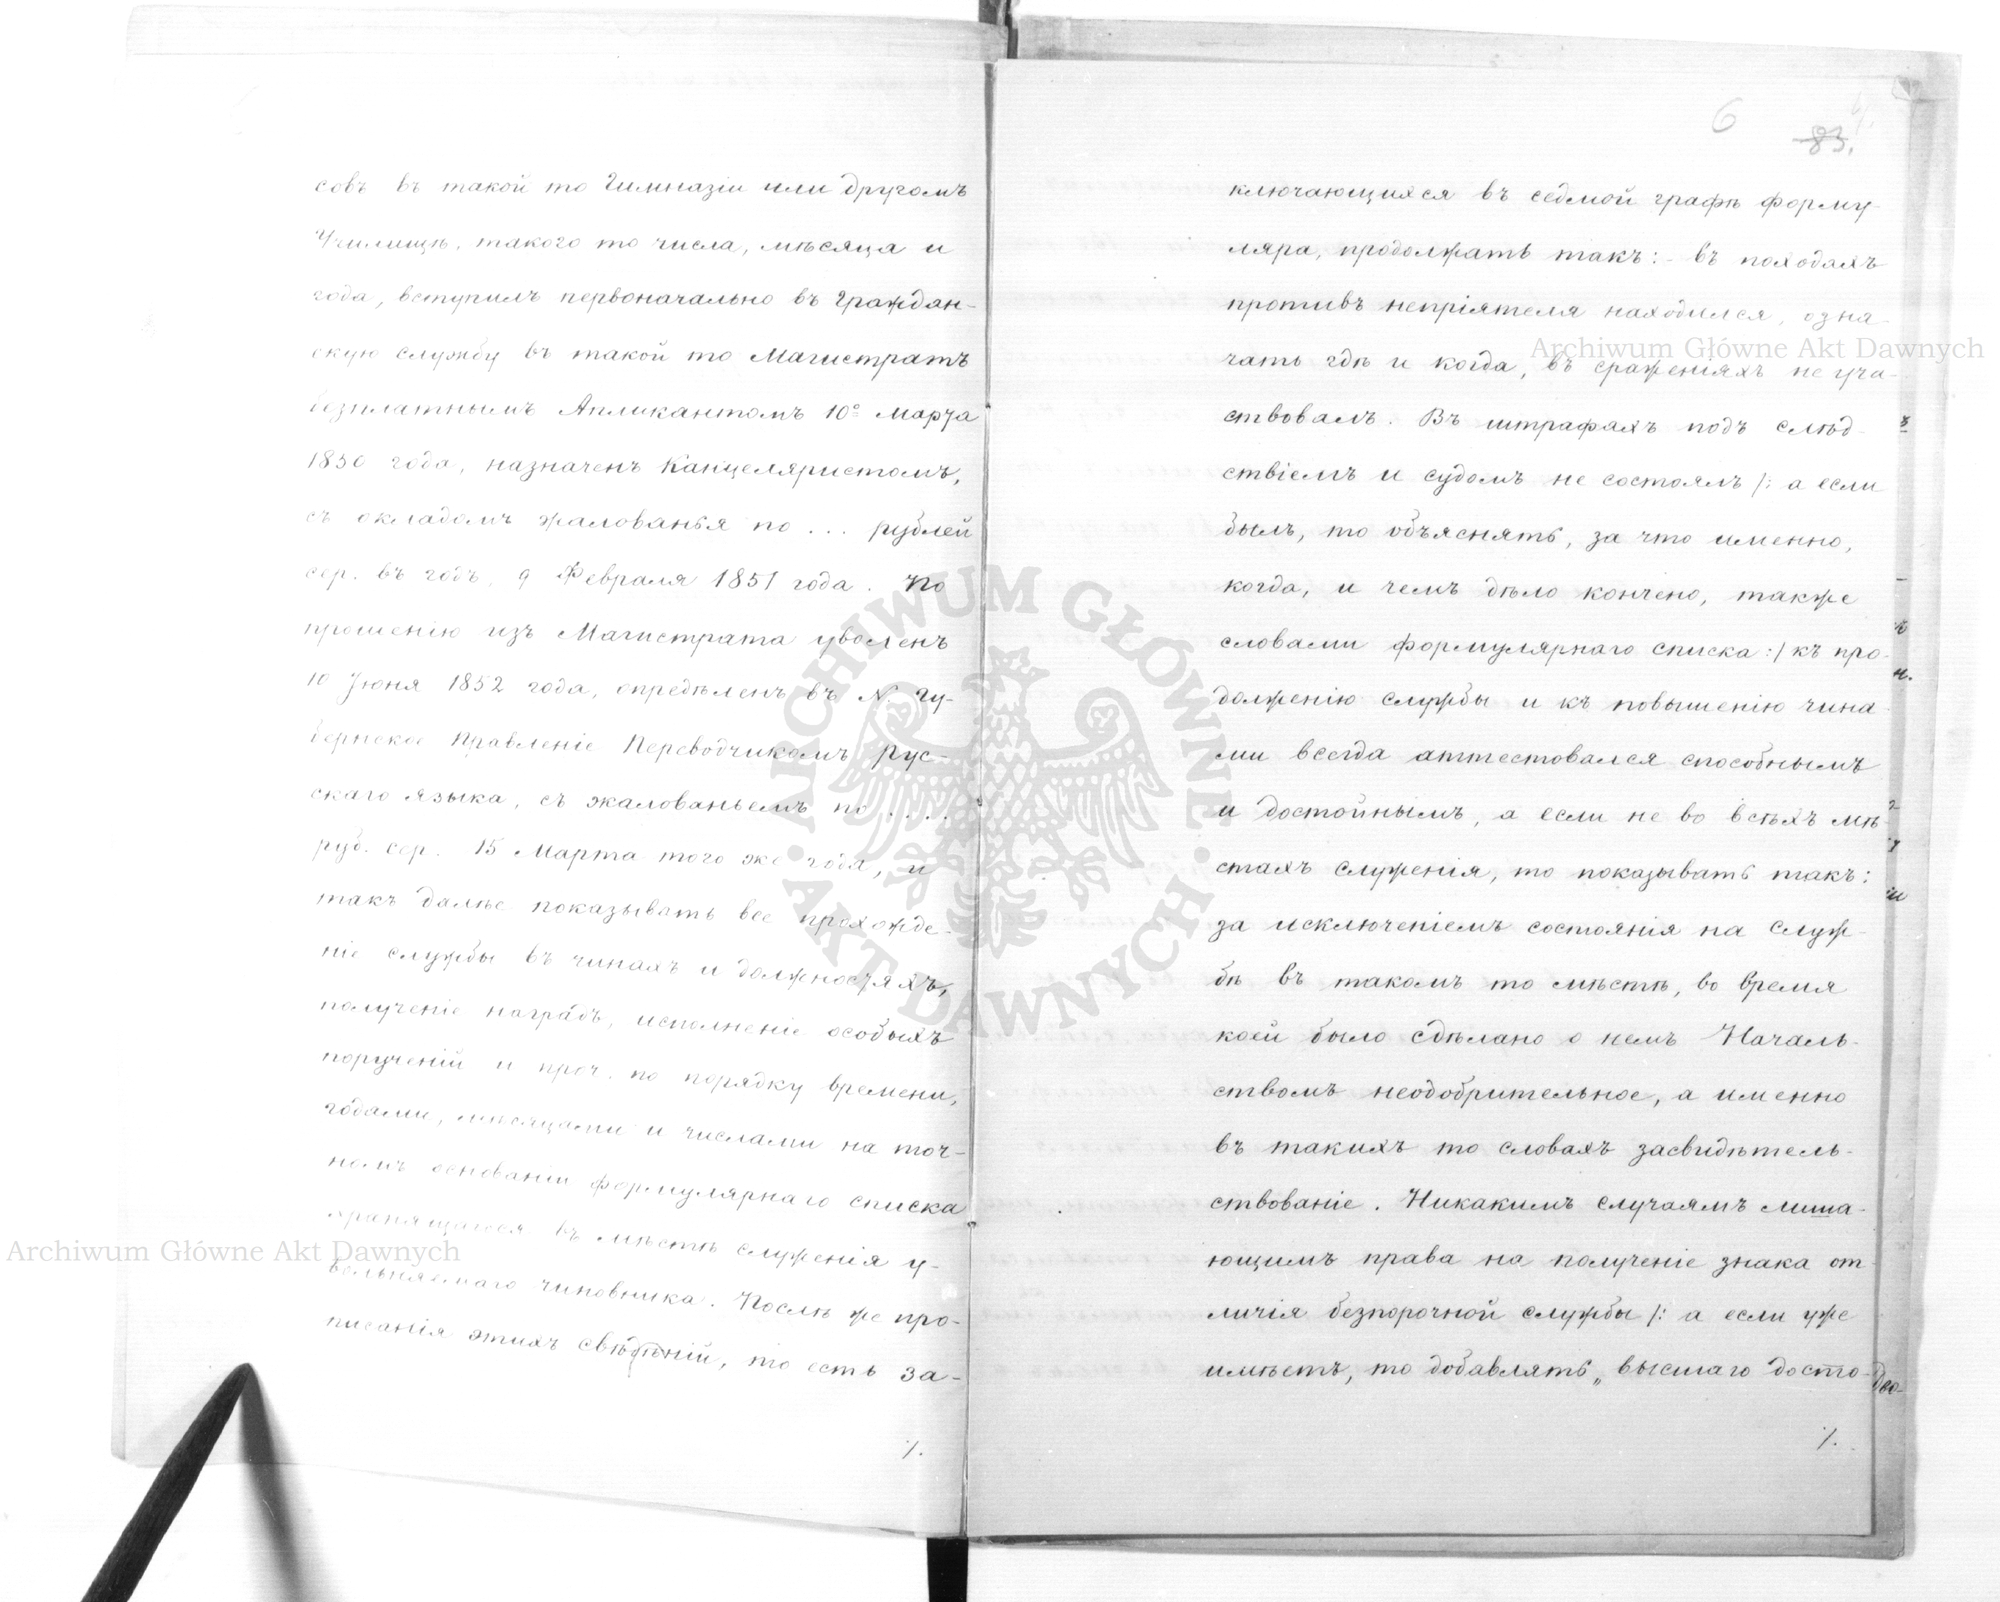 совъ въ такой то Гимназіи или другомъ
Училищѣ, такого то числа, мѣсяца и
года, вступилъ первоначально въ Граждан-
скую службу въ такой то Магистратъ
безплатнымъ Апликантомъ 10º Марта
1850 года, назначенъ Канцеляристомъ,
съ окладомъ жалованья по ... рублей
сер. въ годъ, 9 Февраля 1851 года. По
прошенію изъ Магистрата уволенъ
10 Іюня 1852 года, опредѣленъ въ N. Гу-
бернское Правленіе Переводчикомъ рус-
скаго языка, съ жалованьемъ по ....
руб. сер. 15 Марта того же года, и
такъ далѣе показывать все прохожде-
ніе службы въ чинахъ и должностяхъ,
полученіе наградъ, исполненіе особыхъ
порученій и проч. по порядку времени,
годами, мѣсяцами и числами на точ-
номъ основаніи формулярнаго списка
хранящагося въ мѣстѣ служенія у-
вольняемаго чиновника. Послѣ же про-
писанія этихъ свѣдѣній, то есть за-
./.
6
83.
ключающихся въ седмой графѣ форму-
ляра, продолжать такъ: - въ походахъ
противъ непріятеля находился, озна-
чать гдѣ и когда, въ сраженіяхъ не уча-
ствовалъ. Въ штрафахъ подъ слѣд-
ствіемъ и судомъ не состоялъ /: а если
былъ, то объяснять, за что именно,
когда, и чемъ дѣло кончено, также
словами формулярнаго списка :/ къ про-
долженію службы и къ повышенію чина-
ми всегда аттестовался способнымъ
и достойнымъ, а если не во всѣхъ мѣ-
стахъ служенія, то показывать такъ:
за исключеніемъ состоянія на служ-
бѣ въ такомъ то мѣстѣ, во время
коей было сдѣлано о немъ Началь-
ствомъ неодобрительное, а именно
въ такихъ то словахъ засвидѣтель-
ствованіе. Никакимъ случаямъ лиша-
ющимъ права на полученіе знака от-
личія безпорочной службы /: а если уже
имѣетъ, то добавлять „ высшаго досто-
./.
Archiwum Główne Akt Dawnych
Archiwum Główne Akt Dawnych
ARCHIWUM GŁÓWNE AKT DAWNYCH